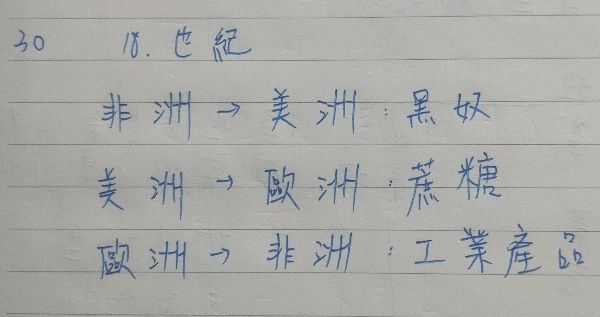 30 18.世紀
非洲→美洲:黑奴
美洲→歐洲:蔗糖
歐洲→非洲:工業產品